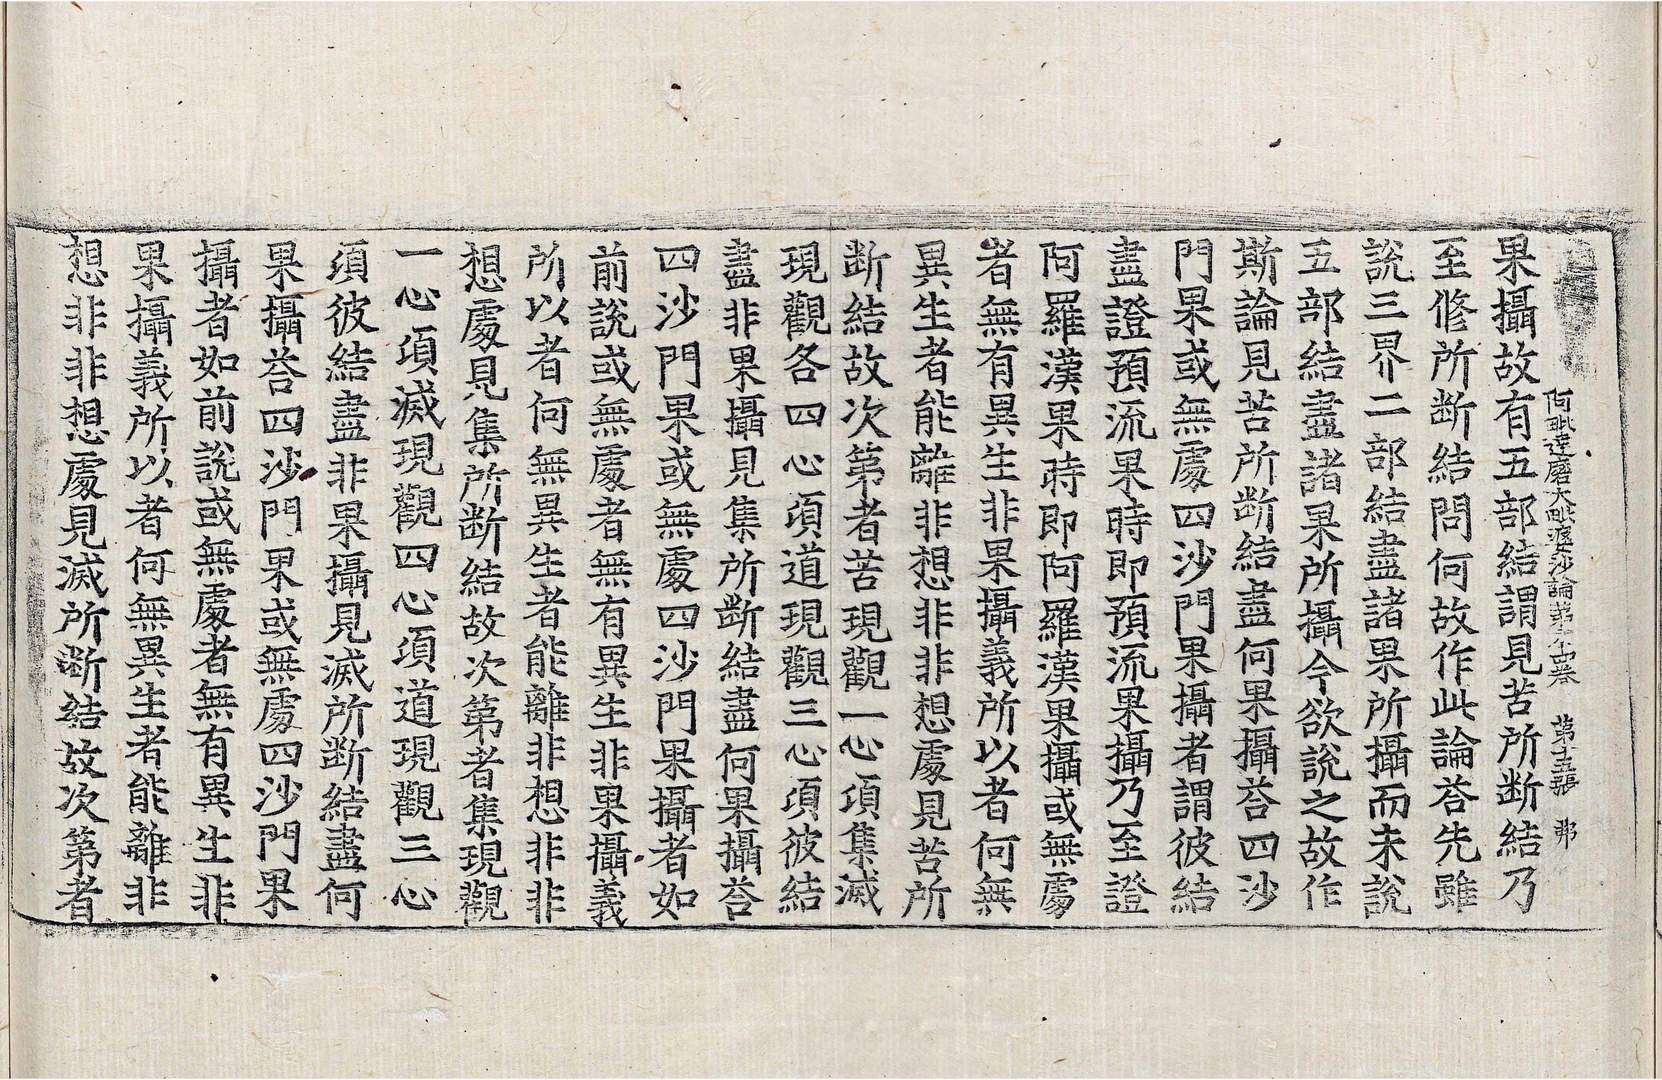 阿毗達磨大毗婆沙論第六十四卷　第十五張　那
果攝故有五部結謂見苦所断結乃
至修所断結問何故作此論荅先雖
說三界二部結盡諸果所攝而未說
五部結盡諸果所攝今欲說之故作
斯論見苦所断結盡何果攝荅四沙
門果或無處四沙門果攝者謂彼結
盡證預流果時即預流果攝乃至證
阿羅漢果時即阿羅漢果攝或無處
者無有異生非果攝義所以者何無
異生者能離非想非非想處見苦所
断結故次第者苦現觀一心項集滅
現觀各四心項道現觀三心項彼結
盡非果攝見集所断結盡何果攝荅
四沙門果或無處四沙門果攝者如
前說或無處者無有異生非果攝義
所以者何無異生者能離非想非非
想處見集所断結故次第者集現觀
一心項滅現觀四心項道現觀三心
項彼結盡非果攝見滅所断結盡何
果攝荅四沙門果或無處四沙門果
攝者如前說或無處者無有異生非
果攝義所以者何無異生者能離非
想非非想處見滅所断結故次第者